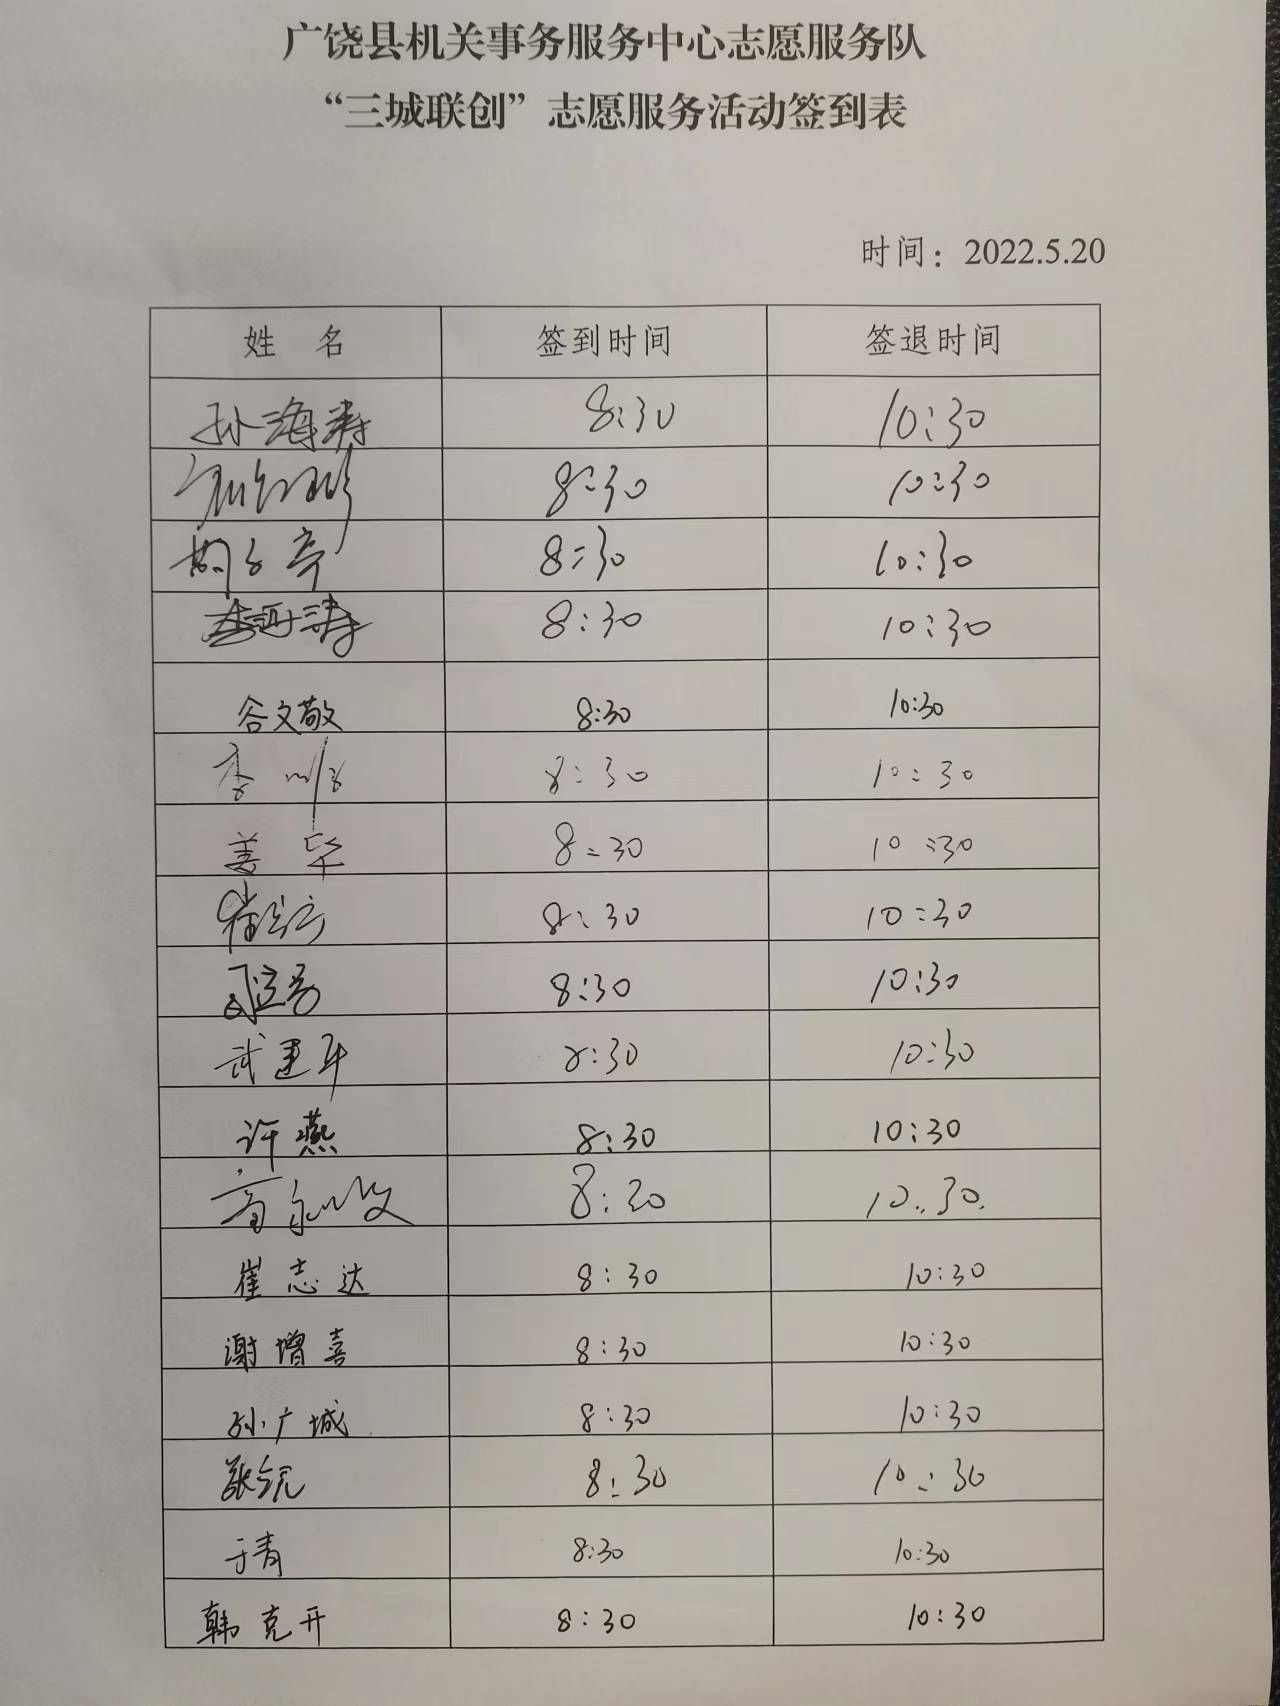 广饶县机关事务服务中心志愿服务队
“三城联创”志愿服务活动签到表
时间：2022.5.20
姓 名 签到时间 签退时间
孙海涛 8:30 10:30
8:30 10:30
8:30 10:30
8:30 10:30
谷文敬 8:30 10:30
李 8:30 10:30
姜华 8:30 10:30
崔 8:30 10:30
8:30 10:30
武建军 8:30 10:30
许燕 8:30 10:30
8:30 10:30
崔志达 8:30 10:30
谢增喜 8:30 10:30
孙广城 8:30 10:30
张 8:30 10:30
于青 8:30 10:30
韩克开 8:30 10:30